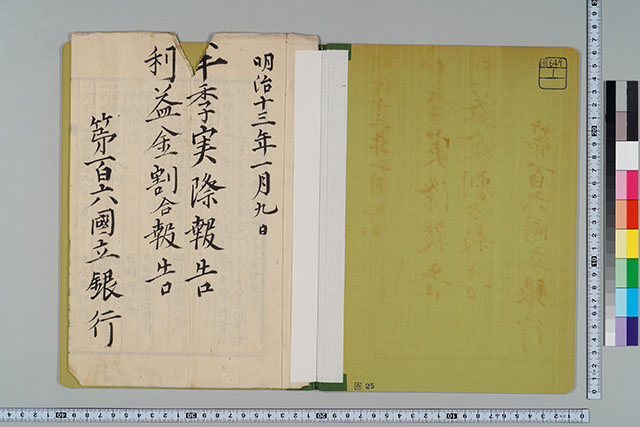 明治十三年一月九日
半季実際報告
利益金割合報告
第百六國立銀行
25